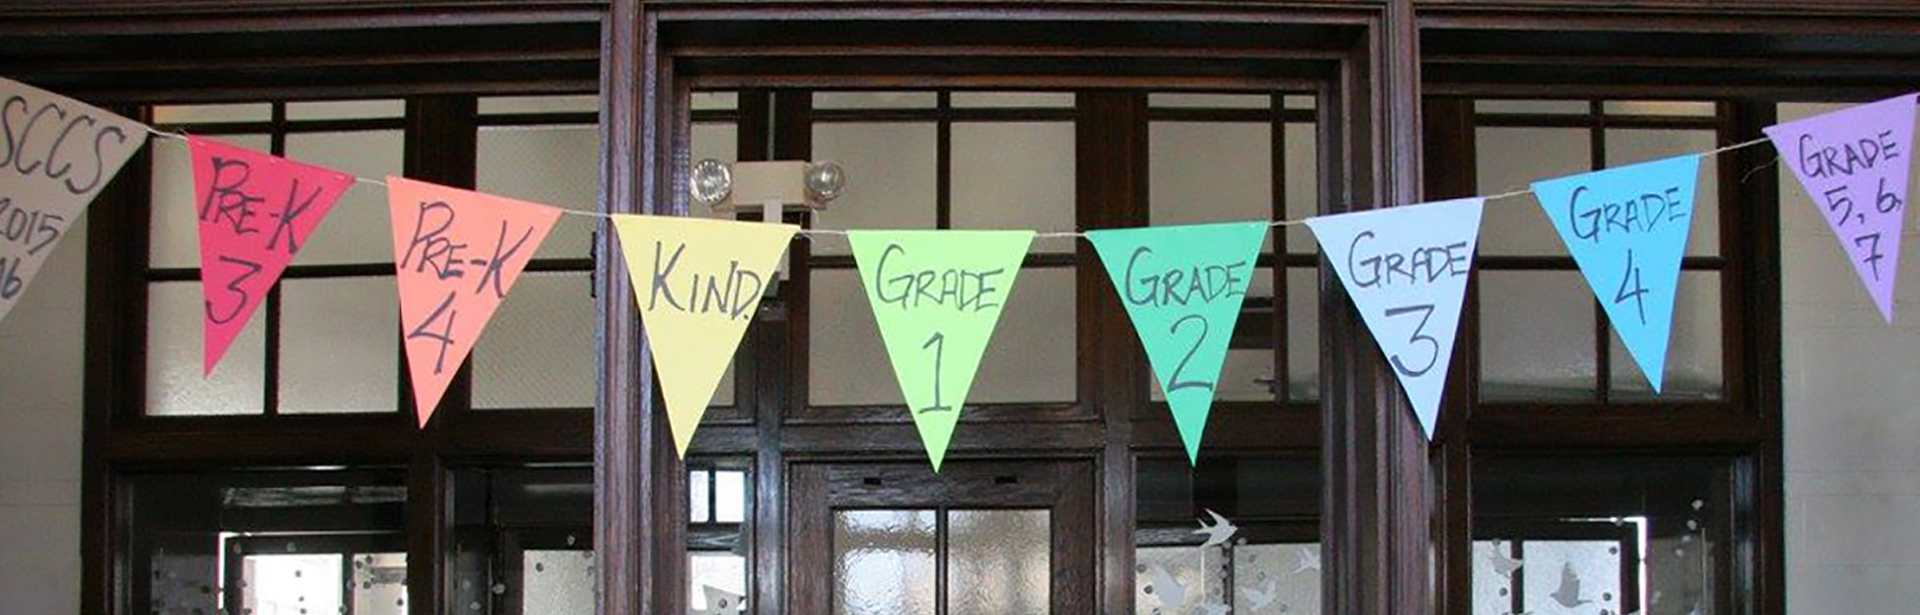 SCCS
2015
16
PRE-K
3
PRE-K
4
KIND.
GRADE
1
GRADE
2
GRADE
3
GRADE
4
GRADE
5, 6,
7